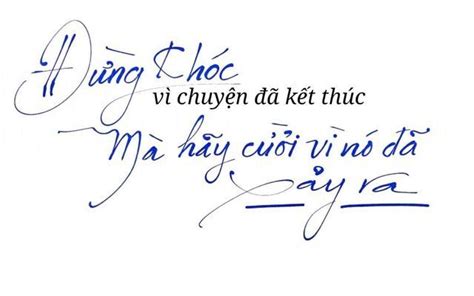 Đừng Khóc
vì chuyện đã kết thúc
Mà hãy cười vì nó đã
xảy ra